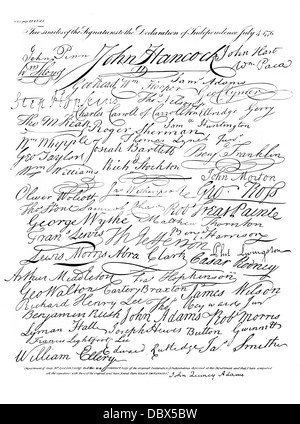 Fac similes of the Signatures to the Declaration of Independence July 4. 1776.
John Penn John Hancock John Hart
Wm Paca
Geo Read Wm Hooper Saml Adams
Geo Clymer
Step Hopkins Tho Nelson jr
Charles Carroll of Carrollton Elbridge Gerry
Tho M:Kean Roger Sherman Saml Huntington
Wm Whipple Thomas Lynch Junr
Geo Taylor Josiah Bartlett Benj Franklin
Wm Williams Richd Stockton John Morton
Oliver Wolcott Jno Witherspoon Geo Ross
Thos Stone Samuel Chase Robt Treat Paine
George Wythe Matthew Thornton
Frans Lewis Th Jefferson Benj Harrison
Lewis Morris Abra Clark Caesar Rodney
Phil Livingston
Arthur Middleton Fras Hopkinson
Geo Walton Carter Braxton James Wilson
Richard Henry Lee Thos Heyward Junr
Benjamin Rush John Adams Rob Morris
Lyman Hall Joseph Hewes Button Gwinnett
Francis Lightfoot Lee
William Ellery Edward Rutledge Jas Smith
John Quincy Adams
alamy
DBX5BW